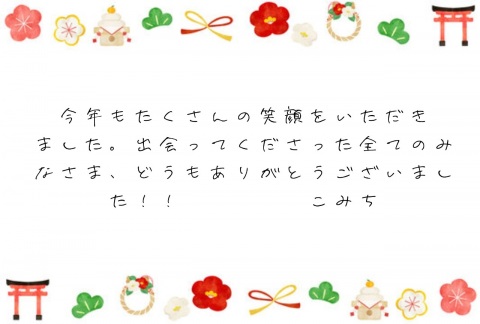 今年もたくさんの笑顔をいただき
ました。出会ってくださった全てのみ
なさま、どうもありがとうございまし
た！！　　　　　　こみち